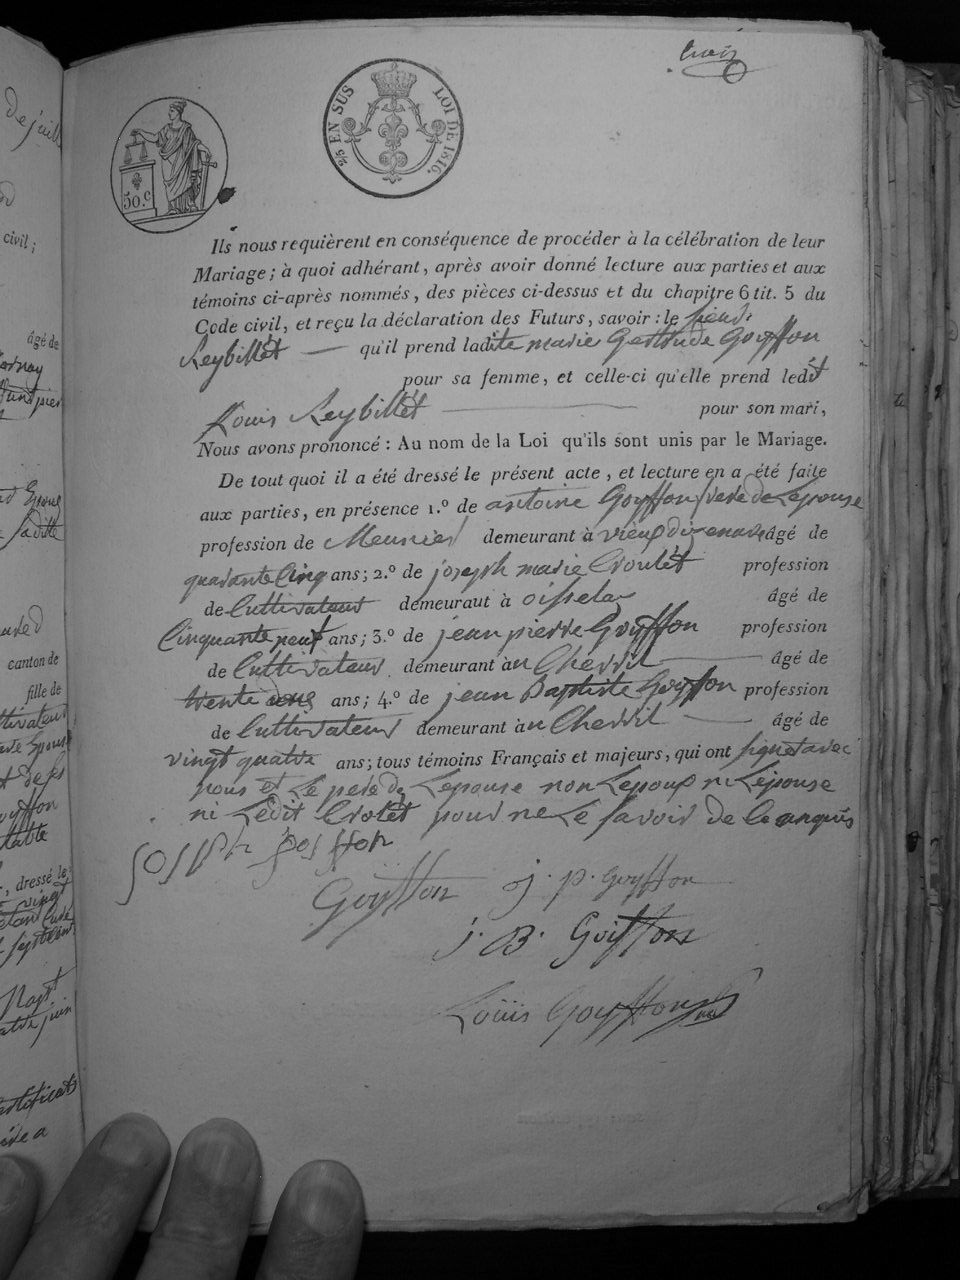 trois
50.c
2/5 EN SUS LOI DE 1816.
Ils nous requièrent en conséquence de procéder à la célébration de leur
Mariage ; à quoi adhérant, après avoir donné lecture aux parties et aux
témoins ci-après nommés, des pièces ci-dessus et du chapitre 6 tit. 5 du
Code civil, et reçu la déclaration des Futurs, savoir : le
Reybillet qu'il prend ladite marie Gertrude Goyffon
pour sa femme, et celle-ci qu'elle prend ledit
Louis Reybillet pour son mari,
Nous avons prononcé : Au nom de la Loi qu'ils sont unis par le Mariage.
De tout quoi il a été dressé le présent acte, et lecture en a été faite
aux parties, en présence 1.º de antoine Goyffon pere de Lepouse
profession de Meunier demeurant à vieux âgé de
quarante Cinq ans ; 2.º de joseph marie Croulet profession
de Cultivateur demeurant à oisselaz âgé de
Cinquante neuf ans ; 3.º de jean pierre Goyffon profession
de Cultivateur demeurant à Chevril âgé de
trente ans ; 4.º de jean Baptiste Goyffon profession
de Cultivateur demeurant à Chevril âgé de
vingt quatre ans ; tous témoins Français et majeurs, qui ont signet avec
nous et Le pere de Lepouse non Lepoux ni Lepouse
ni Ledit Crolet pour ne Le savoir de Ce anquis
Goyffon j. p. Goyffon
j. B. Goiffon
Louis Goyffon